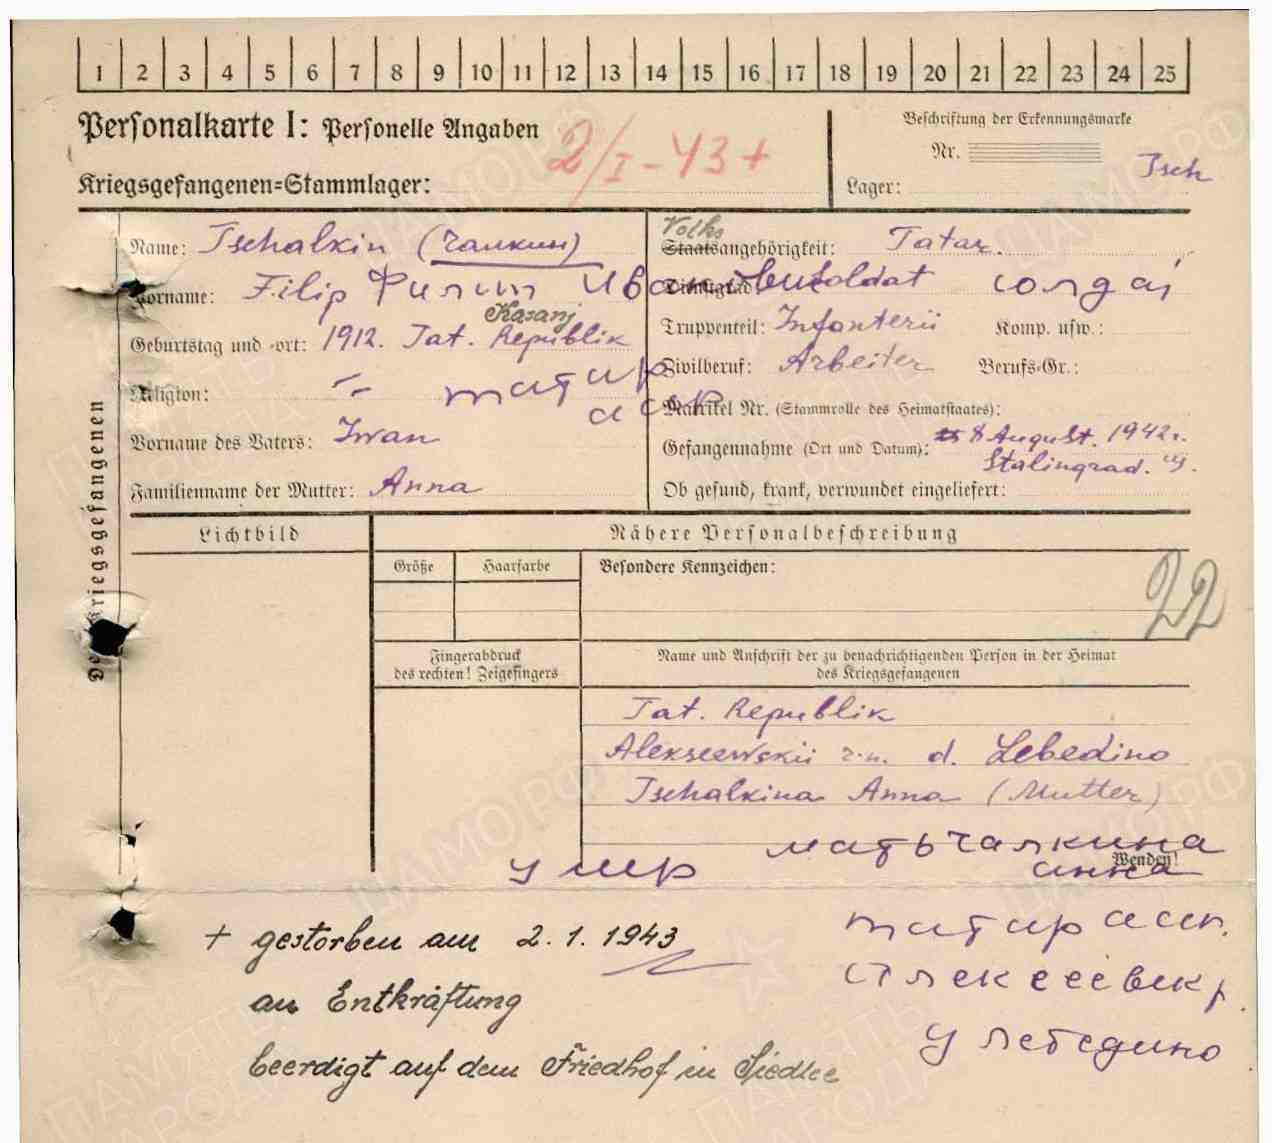 1 2 3 4 5 6 7 8 9 10 11 12 13 14 15 16 17 18 19 20 21 22 23 24 25
Personalkarte I: Personelle Angaben
2/I-43+
Beschriftung der Erkennungsmarke
Nr.
Kriegsgefangenen=Stammlager:
Lager:
Tsch
Name: Tschalkin (Чалкин)
Vorname: Filip Филип Иван
Kasanj
Geburtstag und -ort: 1912. Tat. Republik
Religion: -- татар
асср
Vorname des Vaters: Iwan
Familienname der Mutter: Anna
Volks
Staatsangehörigkeit: Tatar.
Dienstgrad: Soldat солдат
Truppenteil: Infanterii Komp. usw.:
Zivilberuf: Arbeiter Berufs-Gr.:
Matrikel Nr. (Stammrolle des Heimatstaates):
Gefangennahme (Ort und Datum): 8 August. 1942г.
Stalingrad.
Ob gesund, krank, verwundet eingeliefert:
Des Kriegsgefangenen
Lichtbild
Nähere Personalbeschreibung
Größe Haarfarbe Besondere Kennzeichen:
22
Fingerabdruck
des rechten! Zeigefingers
Name und Anschrift der zu benachrichtigenden Person in der Heimat
des Kriegsgefangenen
Tat. Republik
Alekseewskii d. Lebedino
Tschalkina Anna (Mutter)
мать Чалкина
Wenden!
анна
умр
+ gestorben am 2.1.1943
an Entkräftung
beerdigt auf dem Friedhof in Siedlce
татар асср.
Алексеевск р.
у Лебедино
ПАМЯТЬ НАРОДА
ЦАМО РФ